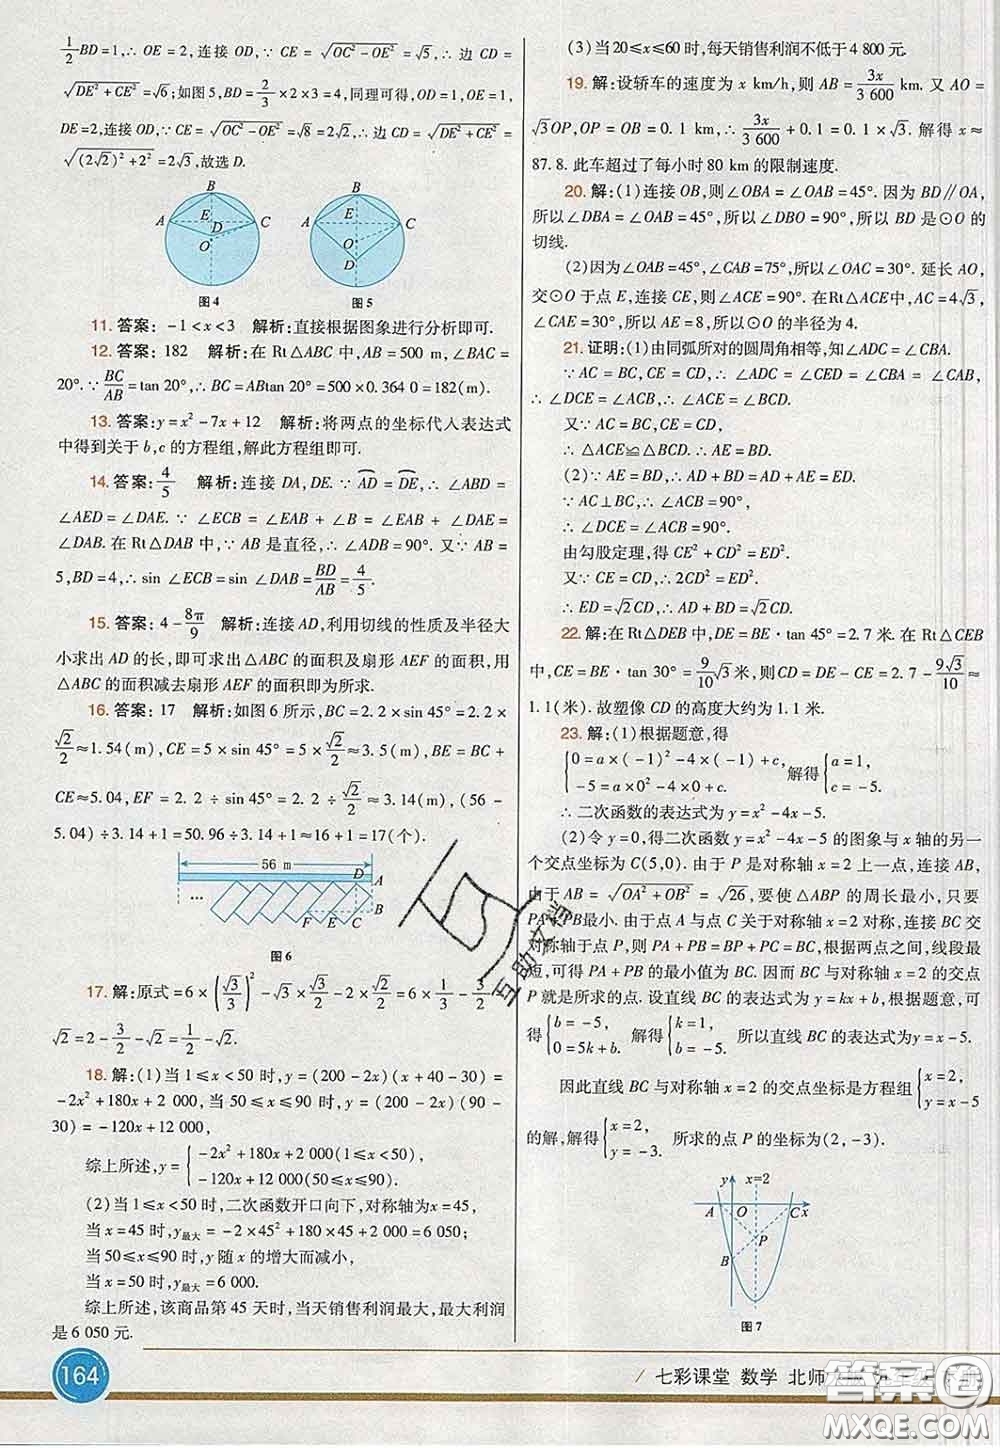 1/2 BD=1,∴OE=2,连接OD,∵CE=√(OC²-OE²)=√5,∴边CD=
√(DE²+CE²)=√6;如图5,BD=2/3×2×3=4,同理可得,OD=1,OE=1,
DE=2,连接OD,∵CE=√(OC²-OE²)=√8=2√2,∴边CD=√(DE²+CE²)=
√((2√2)²+2²)=2√3,故选D.
B
A E D C
O
图4
B
A E C
O
D
图5
11. 答案:-1<x<3 解析:直接根据图象进行分析即可.
12. 答案:182 解析:在Rt△ABC中,AB=500 m,∠BAC=
20°.∵BC/AB=tan 20°,∴BC=ABtan 20°=500×0.364 0=182(m).
13. 答案:y=x²-7x+12 解析:将两点的坐标代入表达式
中得到关于b,c的方程组,解此方程组即可.
14. 答案:4/5 解析:连接DA,DE.∵⌒AD=⌒DE,∴∠ABD=
∠AED=∠DAE.∵∠ECB=∠EAB+∠B=∠EAB+∠DAE=
∠DAB.在Rt△DAB中,∵AB是直径,∴∠ADB=90°.又∵AB=
5,BD=4,∴sin∠ECB=sin∠DAB=BD/AB=4/5.
15. 答案:4-8π/9 解析:连接AD,利用切线的性质及半径大
小求出AD的长,即可求出△ABC的面积及扇形AEF的面积,用
△ABC的面积减去扇形AEF的面积即为所求.
16. 答案:17 解析:如图6所示,BC=2.2×sin 45°=2.2×
√2/2≈1.54(m),CE=5×sin 45°=5×√2/2≈3.5(m),BE=BC+
CE≈5.04,EF=2.2÷sin 45°=2.2÷√2/2≈3.14(m),(56-
5.04)÷3.14+1=50.96÷3.14+1≈16+1=17(个).
56 m
D A
… …
F E C B
图6
17. 解:原式=6×(√3/3)²-√3×√3/2-2×√2/2=6×1/3-3/2-
√2=2-3/2-√2=1/2-√2.
18. 解:(1)当1≤x<50时,y=(200-2x)(x+40-30)=
-2x²+180x+2 000,当50≤x≤90时,y=(200-2x)(90-
30)=-120x+12 000,
综上所述,y={-2x²+180x+2 000(1≤x<50),
-120x+12 000(50≤x≤90).
(2)当1≤x<50时,二次函数开口向下,对称轴为x=45,
当x=45时,y最大=-2×45²+180×45+2 000=6 050;
当50≤x≤90时,y随x的增大而减小,
当x=50时,y最大=6 000.
综上所述,该商品第45天时,当天销售利润最大,最大利润
是6 050元.
164
(3)当20≤x≤60时,每天销售利润不低于4 800元.
19. 解:设轿车的速度为x km/h,则AB=3x/3 600 km.又AO=
√3OP,OP=OB=0.1 km,∴3x/3 600+0.1=0.1×√3.解得x≈
87.8.此车超过了每小时80 km的限制速度.
20. 解:(1)连接OB,则∠OBA=∠OAB=45°.因为BD∥OA,
所以∠DBA=∠OAB=45°,所以∠DBO=90°,所以BD是⊙O的
切线.
(2)因为∠OAB=45°,∠CAB=75°,所以∠OAC=30°.延长AO,
交⊙O于点E,连接CE,则∠ACE=90°.在Rt△ACE中,AC=4√3,
∠CAE=30°,所以AE=8,所以⊙O的半径为4.
21. 证明:(1)由同弧所对的圆周角相等,知∠ADC=∠CBA.
∵AC=BC,CE=CD,∴∠ADC=∠CED=∠CBA=∠CAB,
∴∠DCE=∠ACB,∴∠ACE=∠BCD.
又∵AC=BC,CE=CD,
∴△ACE≌△BCD.∴AE=BD.
(2)∵AE=BD,∴AD+BD=AD+AE=ED.
∵AC⊥BC,∴∠ACB=90°,
∴∠DCE=∠ACB=90°.
由勾股定理,得CE²+CD²=ED².
又∵CE=CD,∴2CD²=ED².
∴ED=√2CD,∴AD+BD=√2CD.
22. 解:在Rt△DEB中,DE=BE·tan 45°=2.7米.在Rt△CEB
中,CE=BE·tan 30°=9/10√3米,则CD=DE-CE=2.7-9√3/10≈
1.1(米).故塑像CD的高度大约为1.1米.
23. 解:(1)根据题意,得
{0=a×(-1)²-4×(-1)+c, -5=a×0²-4×0+c. 解得{a=1, c=-5.
∴二次函数的表达式为y=x²-4x-5.
(2)令y=0,得二次函数y=x²-4x-5的图象与x轴的另一
个交点坐标为C(5,0).由于P是对称轴x=2上一点,连接AB,
由于AB=√(OA²+OB²)=√26,要使△ABP的周长最小,只要
PA+PB最小.由于点A与点C关于对称轴x=2对称,连接BC交
对称轴于点P,则PA+PB=BP+PC=BC,根据两点之间,线段最
短,可得PA+PB的最小值为BC.因而BC与对称轴x=2的交点
P就是所求的点.设直线BC的表达式为y=kx+b,根据题意,可
得{b=-5, 0=5k+b. 解得{k=1, b=-5. 所以直线BC的表达式为y=x-5.
因此直线BC与对称轴x=2的交点坐标是方程组{x=2, y=x-5
的解,解得{x=2, y=-3. 所求的点P的坐标为(2,-3).
y x=2
A O C x
P
B
图7
七彩课堂 数学 北师
答案圈
MXQE.COM
互助文档